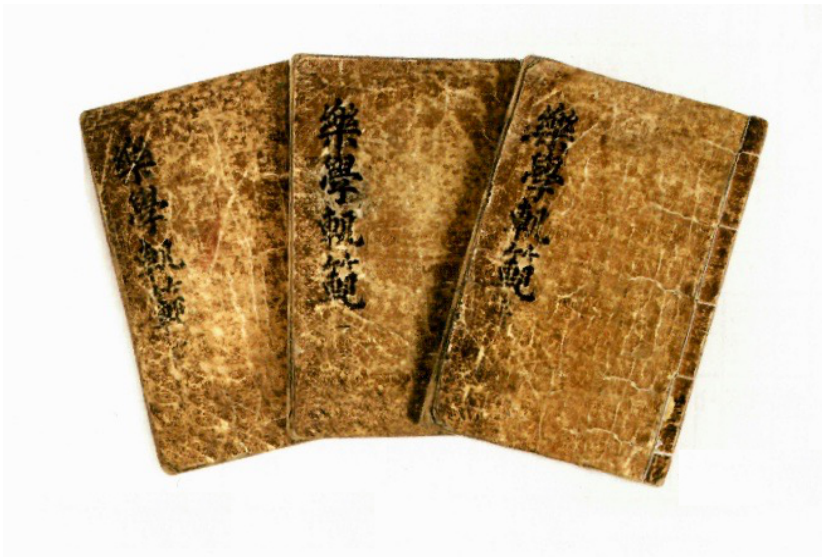 樂學軌範
樂學軌範
樂學軌範